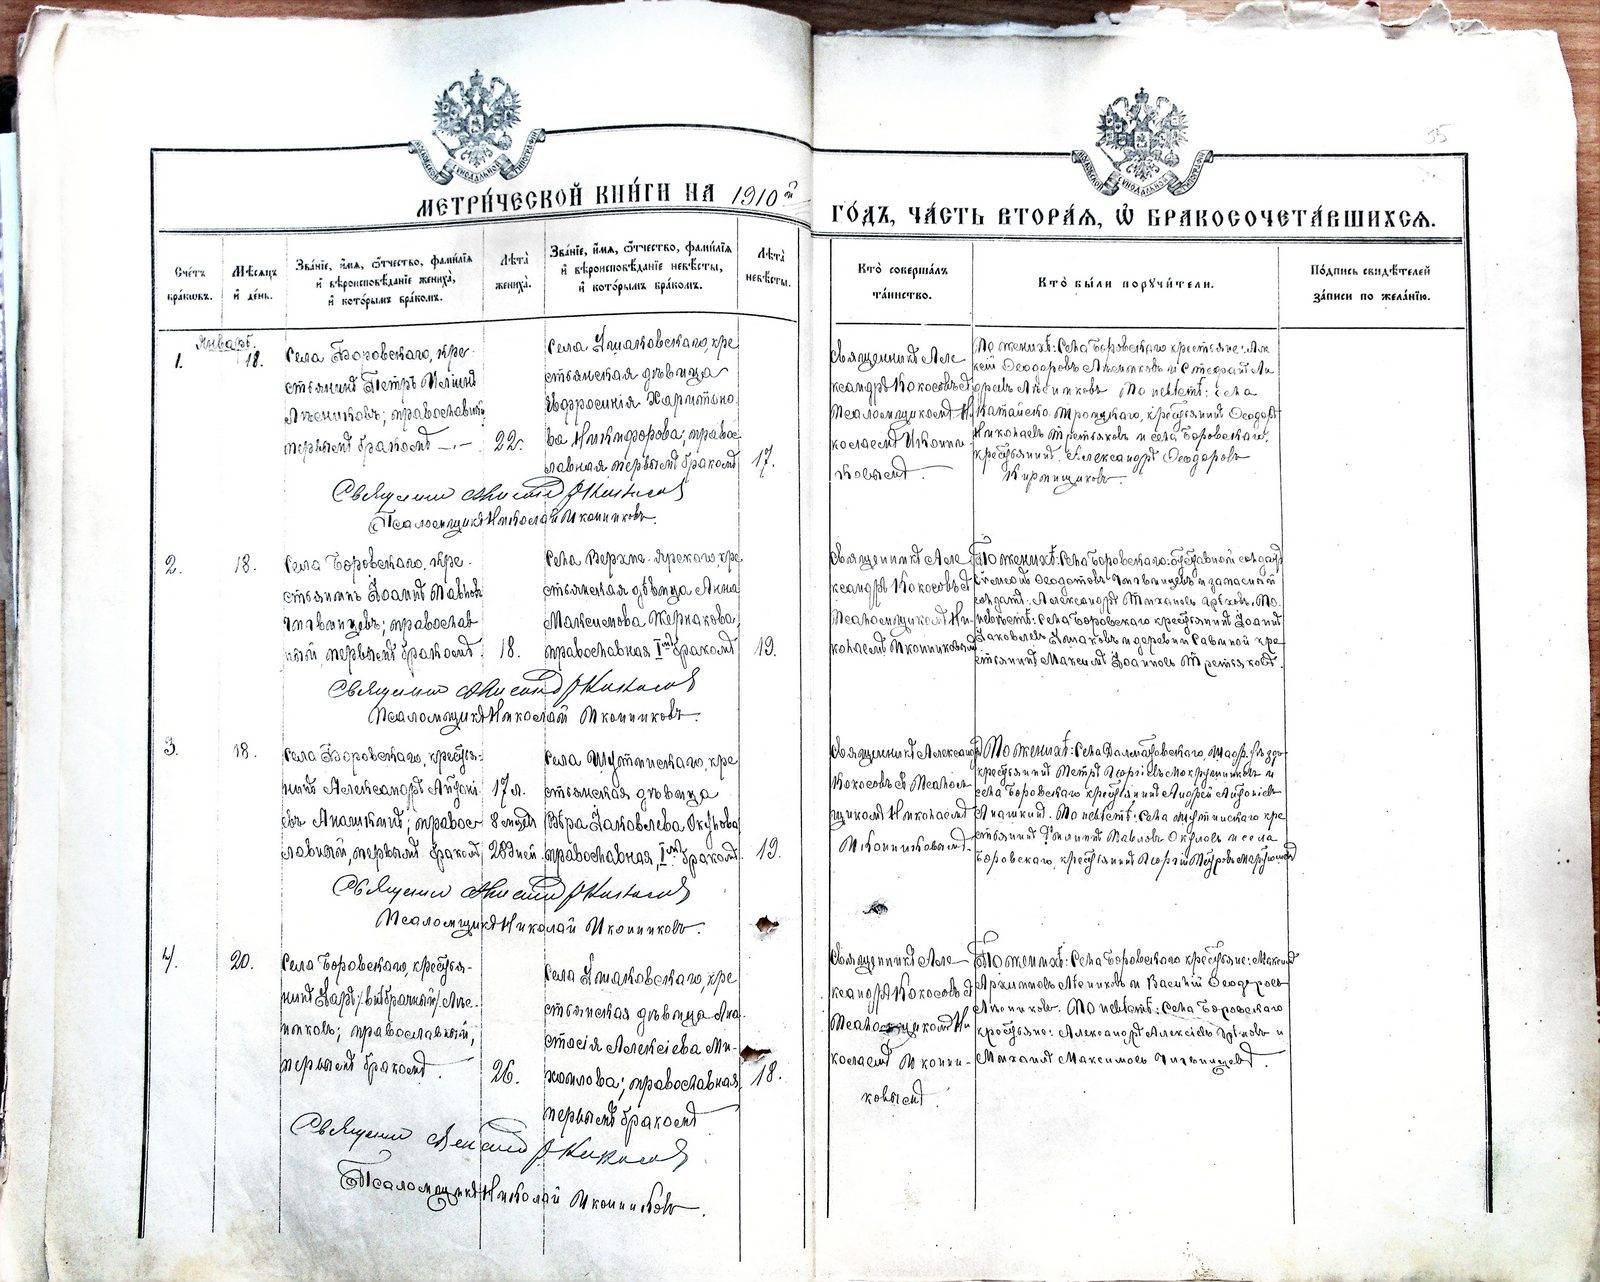 МЕТРИ́ЧЕСКОЙ КНИ́ГИ НА 1910й ГО́ДЪ, ЧА́СТЬ ВТОРА́Я, Ѽ БРАКОСОЧЕТА́ВШИХСЯ.
35
Сче́тъ бра́кωвъ.
Мѣ́сяцъ и́ де́нь.
Зва́нїе, и́мя, ѻ́тчество, фами́лїя
и́ вѣроисповѣ́данїе жениха̀,
и́ кото́рымъ бра́комъ.
Лѣ́та̀ жениха̀.
Зва́нїе, и́мя, ѻ́тчество, фами́лїя
и́ вѣроисповѣ́данїе невѣ́сты,
и́ кото́рымъ бра́комъ.
Лѣ́та̀ невѣ́сты.
Кто̀ соверша́лъ
та́инство.
Кто̀ бы́ли поручи́тели.
По́дпись свидѣ́телей
за́писи по жела́нїю.
Январь.
1.
18.
Села Боровскаго, кре-
стьянинъ Петръ
православный
первымъ бракомъ —
22.
Села Ушаковскаго, кре
стьянская дѣвица
Евфросинія Харитоно
ва Никифорова; право
славная первымъ бракомъ
17.
Священникъ Але
ксандръ Кокосовъ съ
Псаломщикомъ Н
колаемъ Иконни
ковымъ
По женихѣ: Села Боровскаго крестьяне: Але
ксѣй Ѳеодоровъ и Стефанъ
По невѣстѣ: села
Катайско Троицкаго, крестьянинъ Ѳеодоръ
Николаевъ Третьяковъ и села Боровскаго,
крестьянинъ Александръ Ѳеодоровъ
Кирпищиковъ.
Священникъ Александръ Кокосовъ
Псаломщикъ Николай Иконниковъ.
2.
18.
Села Боровскаго, кре-
стьянинъ Іоаннъ Павловъ
православ
ный первымъ бракомъ.
18.
Села Верхне-Ярскаго, кре
стьянская дѣвица Анна
Максимова Жернакова,
православная Iмъ бракомъ
19.
Священникъ Але
ксандръ Кокосовъ съ
Псаломщикомъ Ни-
колаемъ Иконниковымъ
По женихѣ: Села Боровскаго: отставной солдатъ
Ѳеодотовъ и запасный
солдатъ: Александръ Тихановъ По
невѣстѣ: Села Боровскаго крестьянинъ Іоаннъ
Іаковлевъ Ушаковъ и деревни кре
стьянинъ Максимъ Іоанновъ Третьяковъ.
Священникъ Александръ Кокосовъ
Псаломщикъ Николай Иконниковъ.
3.
18.
Села Боровскаго, крестья-
нинъ Александръ Антоні
евъ православ
лавный, первымъ бракомъ
17 л.
8 мѣсяц
28 дней.
Села Шутинскаго, кре
стьянская дѣвица
Вѣра Іаковлева Окулова
православная, Iмъ бракомъ.
19.
Священникъ Александръ
Кокосовъ съ Псалом
щикомъ Николаемъ
Иконниковымъ
По женихѣ: Села Далматовскаго, Шадр. уѣзда
крестьянинъ Петръ Георгіевъ Мокрушниковъ и
села Боровскаго крестьянинъ Андрей Антоніевъ
По невѣстѣ: Села Шутинскаго кре
стьянинъ Филиппъ Павловъ Окуловъ и села
Боровскаго, крестьянинъ Георгій Петровъ
Священникъ Александръ Кокосовъ
Псаломщикъ Николай Иконниковъ.
4.
20.
Села Боровскаго, крестья-
нинъ Карпъ /внѣбрачный/
православный,
первымъ бракомъ.
26.
Села Ушаковскаго, кре
стьянская дѣвица Ана
стасія Алексіева Ми-
хаилова; православная
первымъ бракомъ
18.
Священникъ Але
ксандръ Кокосовъ съ
Псаломщикомъ Ни
колаемъ Иконни-
ковымъ.
По женихѣ: Села Боровскаго крестьяне: Максимъ
и Василій Ѳеодоровъ
По невѣстѣ: Села Боровскаго
крестьяне: Александръ Алексіевъ и
Михаилъ Максимовъ
Священникъ Александръ Кокосовъ
Псаломщикъ Николай Иконниковъ.